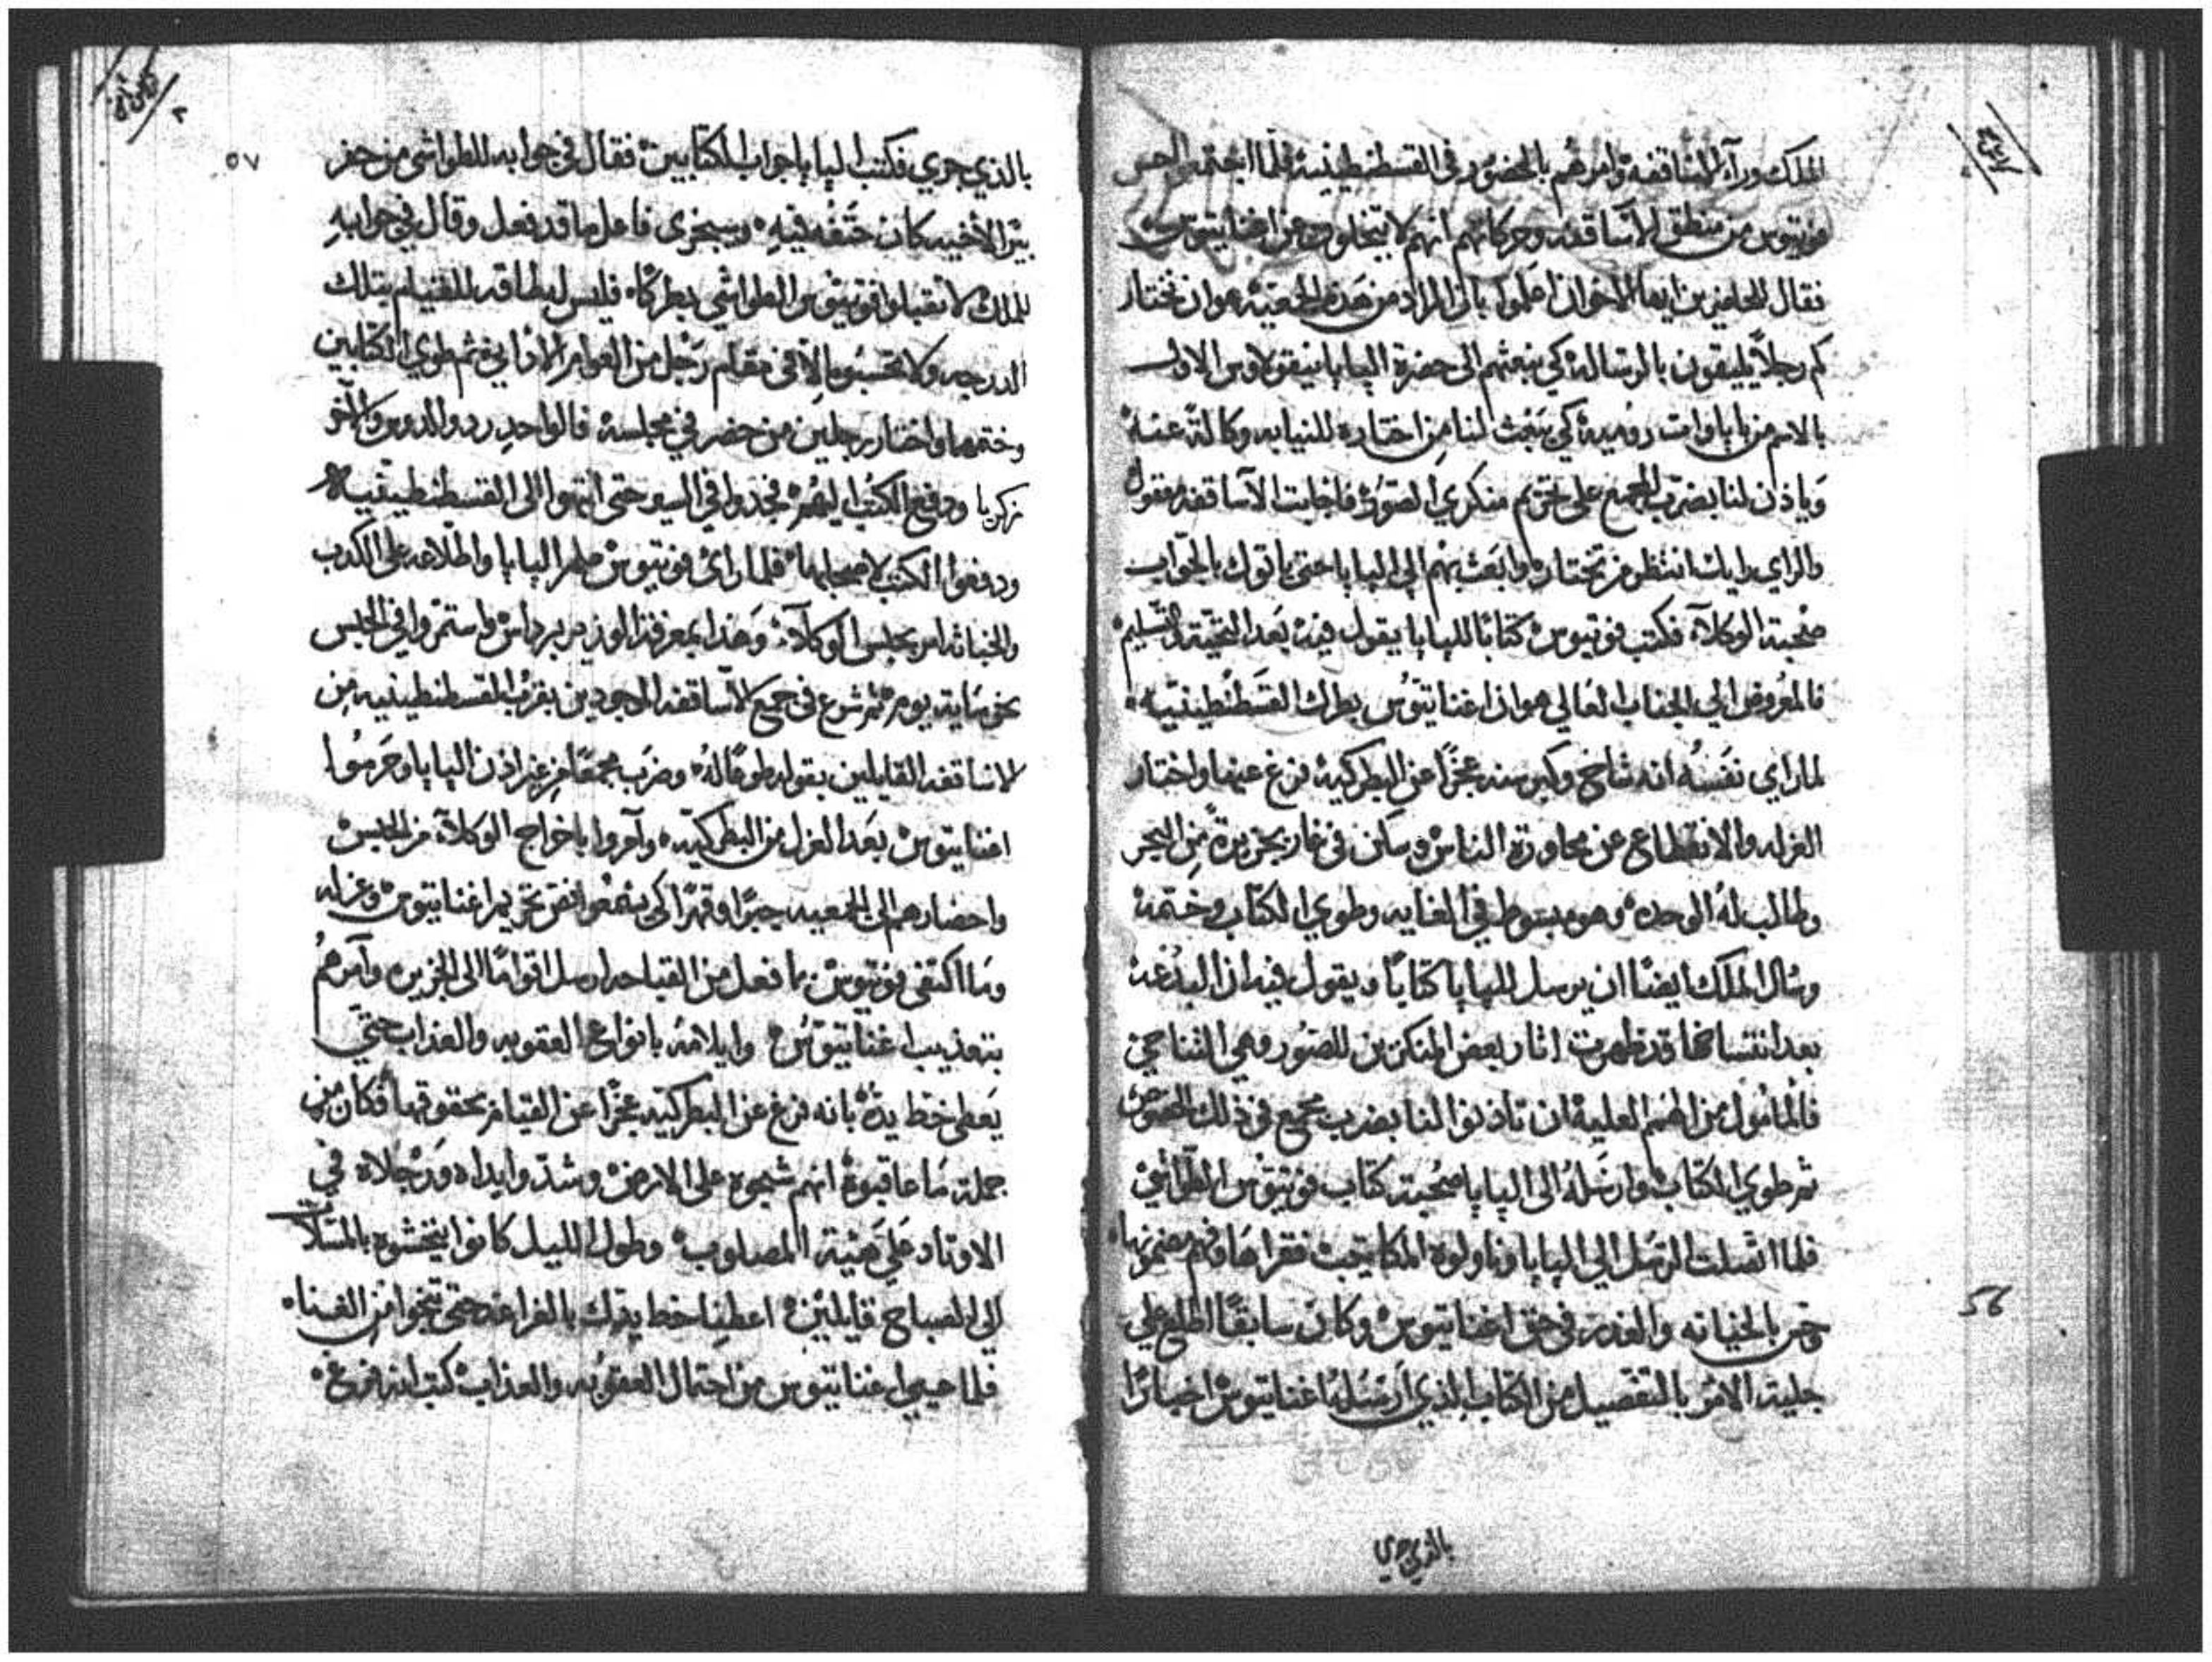 الملك ورآء الاساقفه وامرهم بالحضور في القسطنطينية فلما اجتمعوا احس
فوتيوس من منطق الآساقفه وحركاتهم انهم لا يتخلون عن اغناتيوس
فقال للحاضرين ايها الاخوان اعلموا بان المراد من هذه الجمعية هو ان نختار
كم رجلاً يليقون بالرسالة كي نبعثهم الى حضرة البابا نيقولاوس الاول
بالاسم من باباوات رومية كي يبعث لنا من اختاره للنيابه وكالةً عنه
وياذن لنا بضرب المجمع على تحريم منكري الصور فاجابت الآساقفه بقول
والراي رايك انتظر من تختاره وابعث بهم الى البابا حتى ياتوك بالجواب
صحبة الوكلاء فكتب فوتيوس كتابا للبابا يقول فيه بعد التحية والتسليم
فالمعروض الي الجناب العالي هو ان اغناتيوس بطرك القسطنطينيه
لما راي نفسه انه شاخ وكبر سنه عجزاً عن البطركية فرغ عنها واختار
العزله والانقطاع عن مجاورة الناس وسكن في غار بجزيرة من البحر
وطالب له الوحده وهو مبسوط في الغايه وطوي الكتاب وختمه
وسال الملك ايضاً ان يرسل للبابا كتاباً ويقول فيه ان البدعة
بعد انتساخها قد ظهرت اثار بعض المنكرين للصور وهي
فالمامول من الهمم العلية ان تاذنوا لنا بضرب مجمع في ذلك الخصوص
ثم طوي الكتاب وارسله الى البابا صحبة كتاب فوتيوس الطواشي
فلما اتصلت الرسل الي البابا وناولوه المكاتيب فقراها وفهم مضمونها
بالخيانه والغدر في حق اغناتيوس وكان سابقاً اطلع على
جلية الامر بالتفصيل من الكتاب الذي ارسله اغناتيوس اخباراً
بالذي جري
56
بالذي جري فكتب البابا جواب الكتابين فقال في جوابه للطواشي من حفر
بير الأخيه كان حتفه فيه وسيجزى فاعل ما قد فعل وقال في جوابه
للملك لا تقبلوا فوتيوس الطواشي بطركا فليس له طاقه للقيام بتلك
الدرجه ولا تحسبوه الا في مقام رجل من العوام ثم طوي الكتابين
وختمهما واختار رجلين من حضر في مجلسه فالواحد والاخر
زكريا ودفع الكتب اليهم فجدوا في السير حتى انتهوا الى القسطنطينيه
ودفعوا الكتب لاصحابها فلما رائ فوتيوس البابا واطلاعه على الكدب
والخباثه امر بحبس الوكلاء وهذا بمعرفة الوزير برداس واستمروا في الحبس
نحو ماية يوم ثم شرع في جمع الآساقفه الموجودين بقرب القسطنطينيه من
الاساقفه القايلين بقوله طوعًا له وضرب مجمعًا من غير اذن البابا وحرموا
اغناتيوس بعد العزل من البطركيه وآمروا باخراج الوكلاء من الحبس
واحضارهم الى الجمعيه جبرًا وقهرًا كي تحريم اغناتيوس وعزله
وما اكتفى فوتيوس بما فعل من القباحه ارسل اقوامًا الى الجزيره وآمرهم
بتعذيب اغناتيوس وايلامه بانواع العقوبه والعذاب حتي
يعطي خط يده بانه فرغ عن البطركيه عجزًا عن القيام بحقوقها فكان من
جملة ما عاقبوه انهم شبحوه على الارض وشدوا يداه ورجلاه في
الاوتاد علي هيئة المصلوب وطول الليل كانوا ينخشوه بالمسلات
الي الصباح قايلين اعطنا خط يدك بالفراغه حتى تنجوا من الفناه
فلما عيي اغناتيوس من احتمال العقوبه والعذاب كتب انه فرغ
٥٧